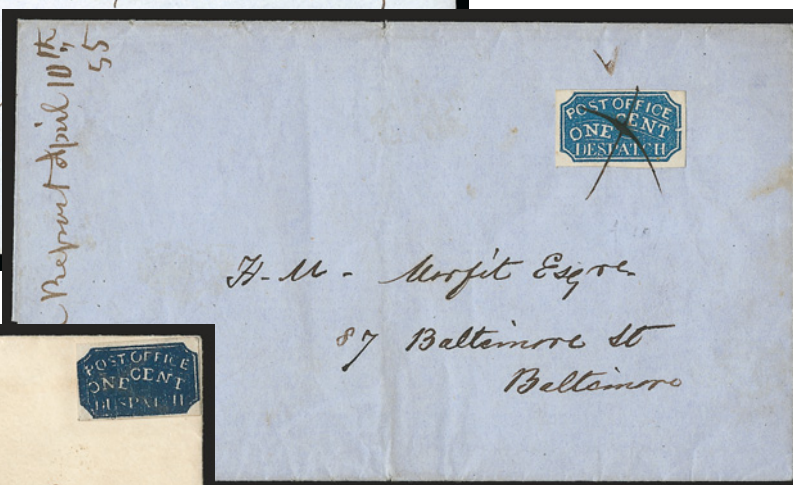 Report April 10th
55
POST OFFICE
ONE CENT
DESPATCH
H. M. Morfit Esqre
87 Baltimore St
Baltimore
POST OFFICE
ONE CENT
DESPATCH